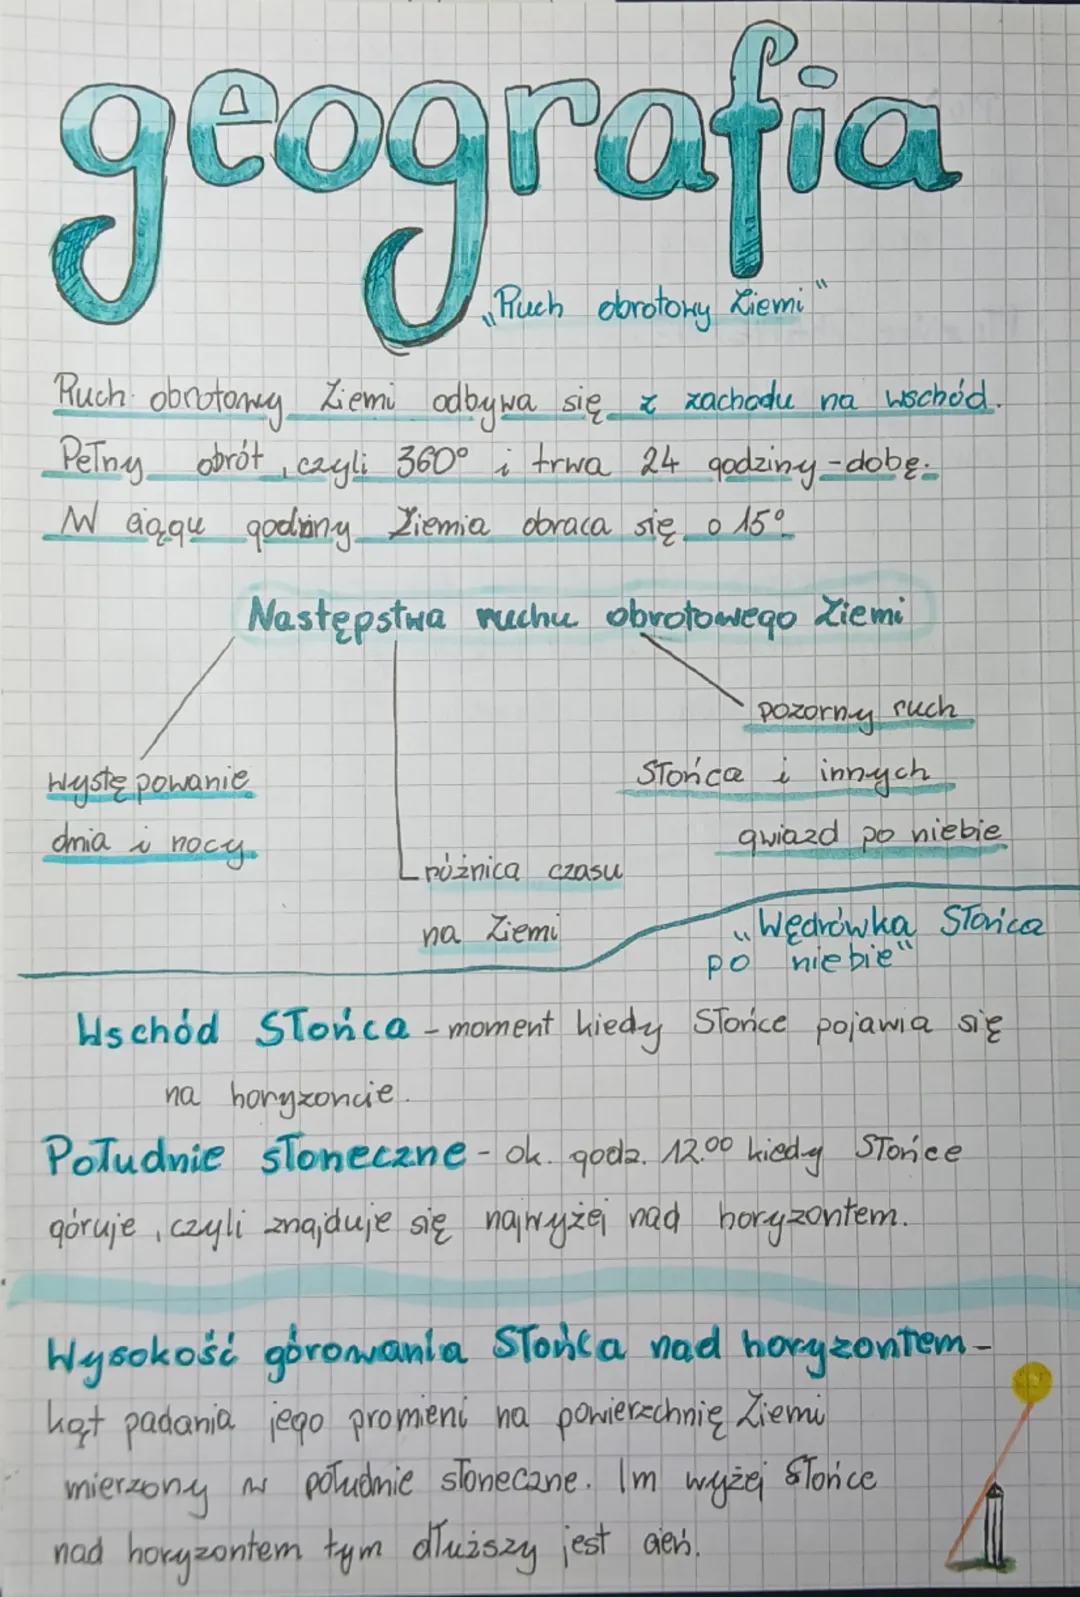 geografia
„Ruch obrotowy Ziemi"
Ruch obrotowy Ziemi odbywa się z zachodu na wschód.
Pełny obrót, czyli 360° i trwa 24 godziny - dobę.
W ciągu godziny Ziemia obraca się o 15°
Następstwa ruchu obrotowego Ziemi
występowanie
dnia i nocy
różnica czasu
na Ziemi
pozorny ruch
Słońca i innych
gwiazd po niebie
„Wędrówka Słońca
po niebie"
Wschód Słońca - moment kiedy Słońce pojawia się
na horyzoncie.
Południe słoneczne - ok. godz. 12.00 kiedy Słońce
góruje, czyli znajduje się najwyżej nad horyzontem.
Wysokość górowania Słońca nad horyzontem -
kąt padania jego promieni na powierzchnię Ziemi
mierzony w południe słoneczne. Im wyżej Słońce
nad horyzontem tym dłuższy jest cień.